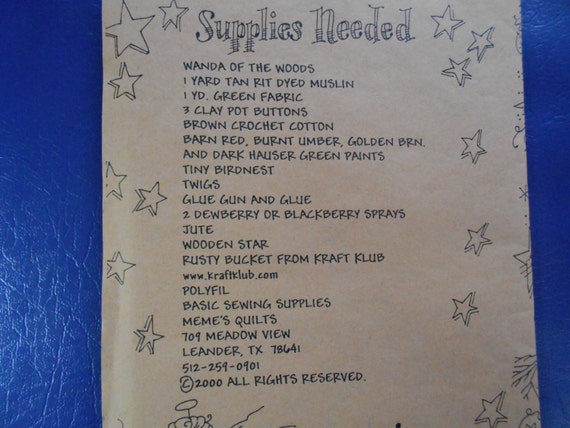 Supplies Needed
WANDA OF THE WOODS
1 YARD TAN RIT DYED MUSLIN
1 YD. GREEN FABRIC
3 CLAY POT BUTTONS
BROWN CROCHET COTTON
BARN RED, BURNT UMBER, GOLDEN BRN.
AND DARK HAUSER GREEN PAINTS
TINY BIRDNEST
TWIGS
GLUE GUN AND GLUE
2 DEWBERRY OR BLACKBERRY SPRAYS
JUTE
WOODEN STAR
RUSTY BUCKET FROM KRAFT KLUB
www.kraftklub.com
POLYFIL
BASIC SEWING SUPPLIES
MEME'S QUILTS
709 MEADOW VIEW
LEANDER, TX 78641
512-259-0901
©2000 ALL RIGHTS RESERVED.